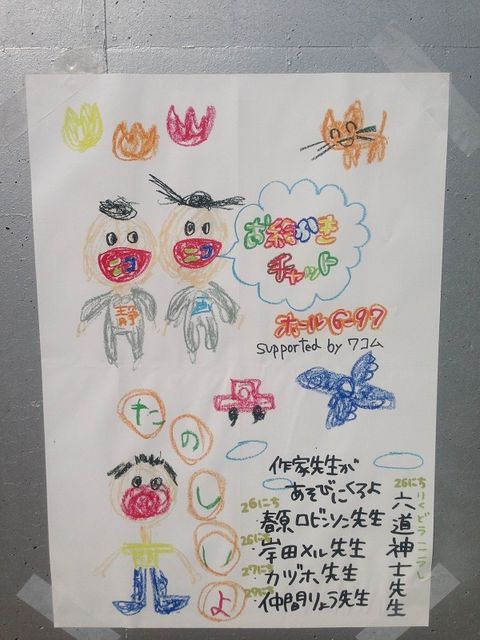 お絵かき
チャット
ニコ
ニコ
静
画
ホールG-97
supported by ワコム
たのしいよ
作家先生が
あそびにくるよ
26にち
春原ロビンソン先生
26にち
岸田メル先生
27にち
カヅホ先生
27にち
仲間りょう先生
26にち
りくどうしんし
六道神士先生